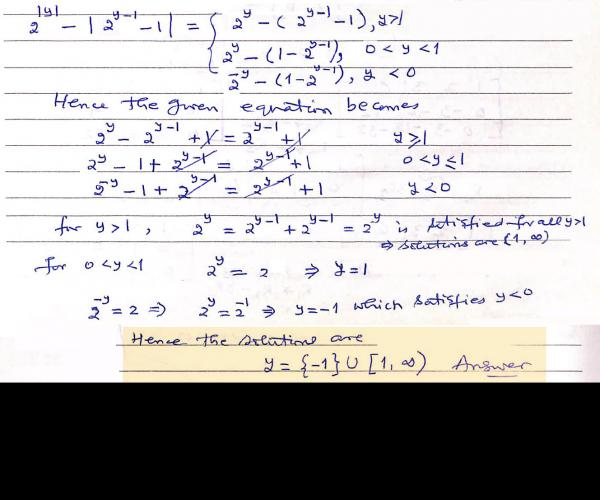 2^|y| - |2^{y-1} - 1| = { 2^y - (2^{y-1} - 1), y>1
2^y - (1 - 2^{y-1}), 0 < y < 1
2^{-y} - (1 - 2^{y-1}), y < 0
Hence the given equation becomes
2^y - 2^{y-1} + 1 = 2^{y-1} + 1 y ≥ 1
2^y - 1 + 2^{y-1} = 2^{y-1} + 1 0 < y ≤ 1
2^{-y} - 1 + 2^{y-1} = 2^{y-1} + 1 y < 0
for y > 1, 2^y = 2^{y-1} + 2^{y-1} = 2^y is satisfied for all y>1
⇒ solutions are (1, ∞)
for 0 < y < 1 2^y = 2 ⇒ y = 1
2^{-y} = 2 ⇒ 2^y = 2^{-1} ⇒ y = -1 which satisfies y < 0
Hence the solutions are
y = {-1} ∪ [1, ∞) Answer